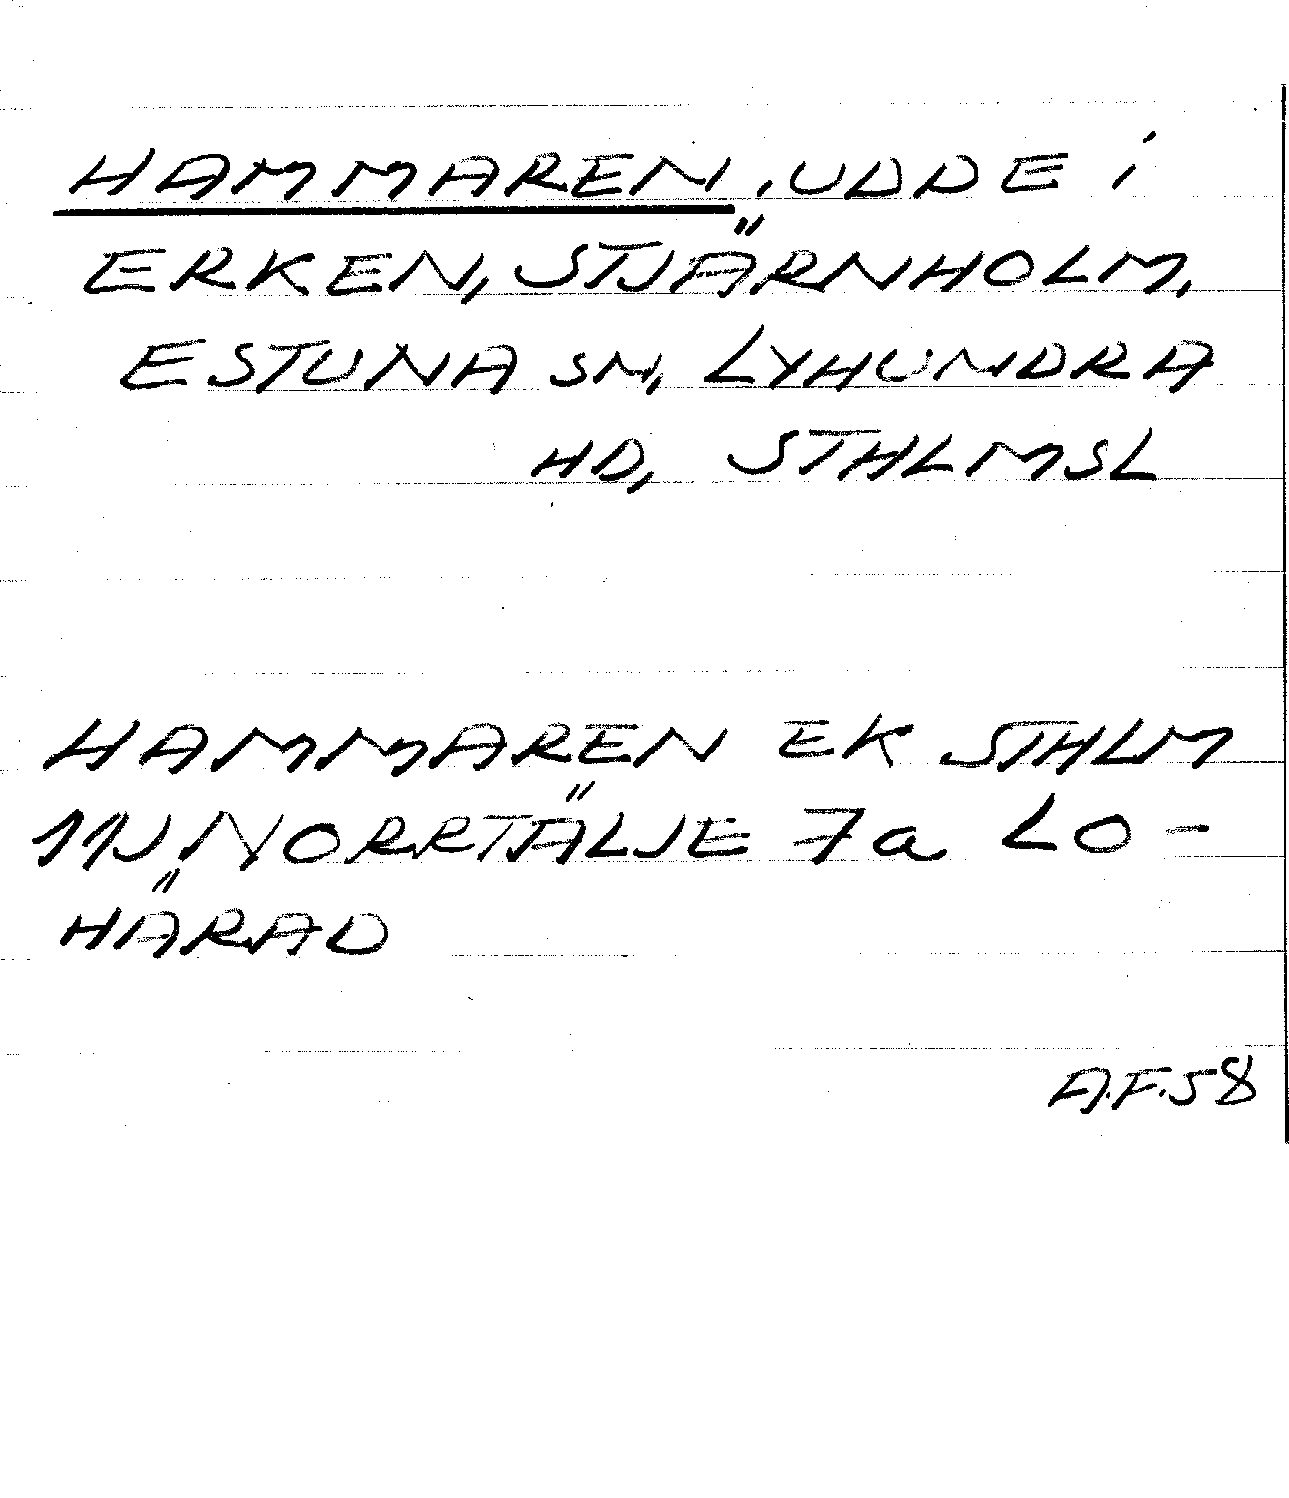 HAMMAREN, UDDE i
ERKEN, STJÄRNHOLM,
ESTUNA SN, LYHUNDRA
HD, STHLMSL
HAMMAREN EK STHLM
11J NORRTÄLJE 7a LO-
HÄRAD
A.F.58